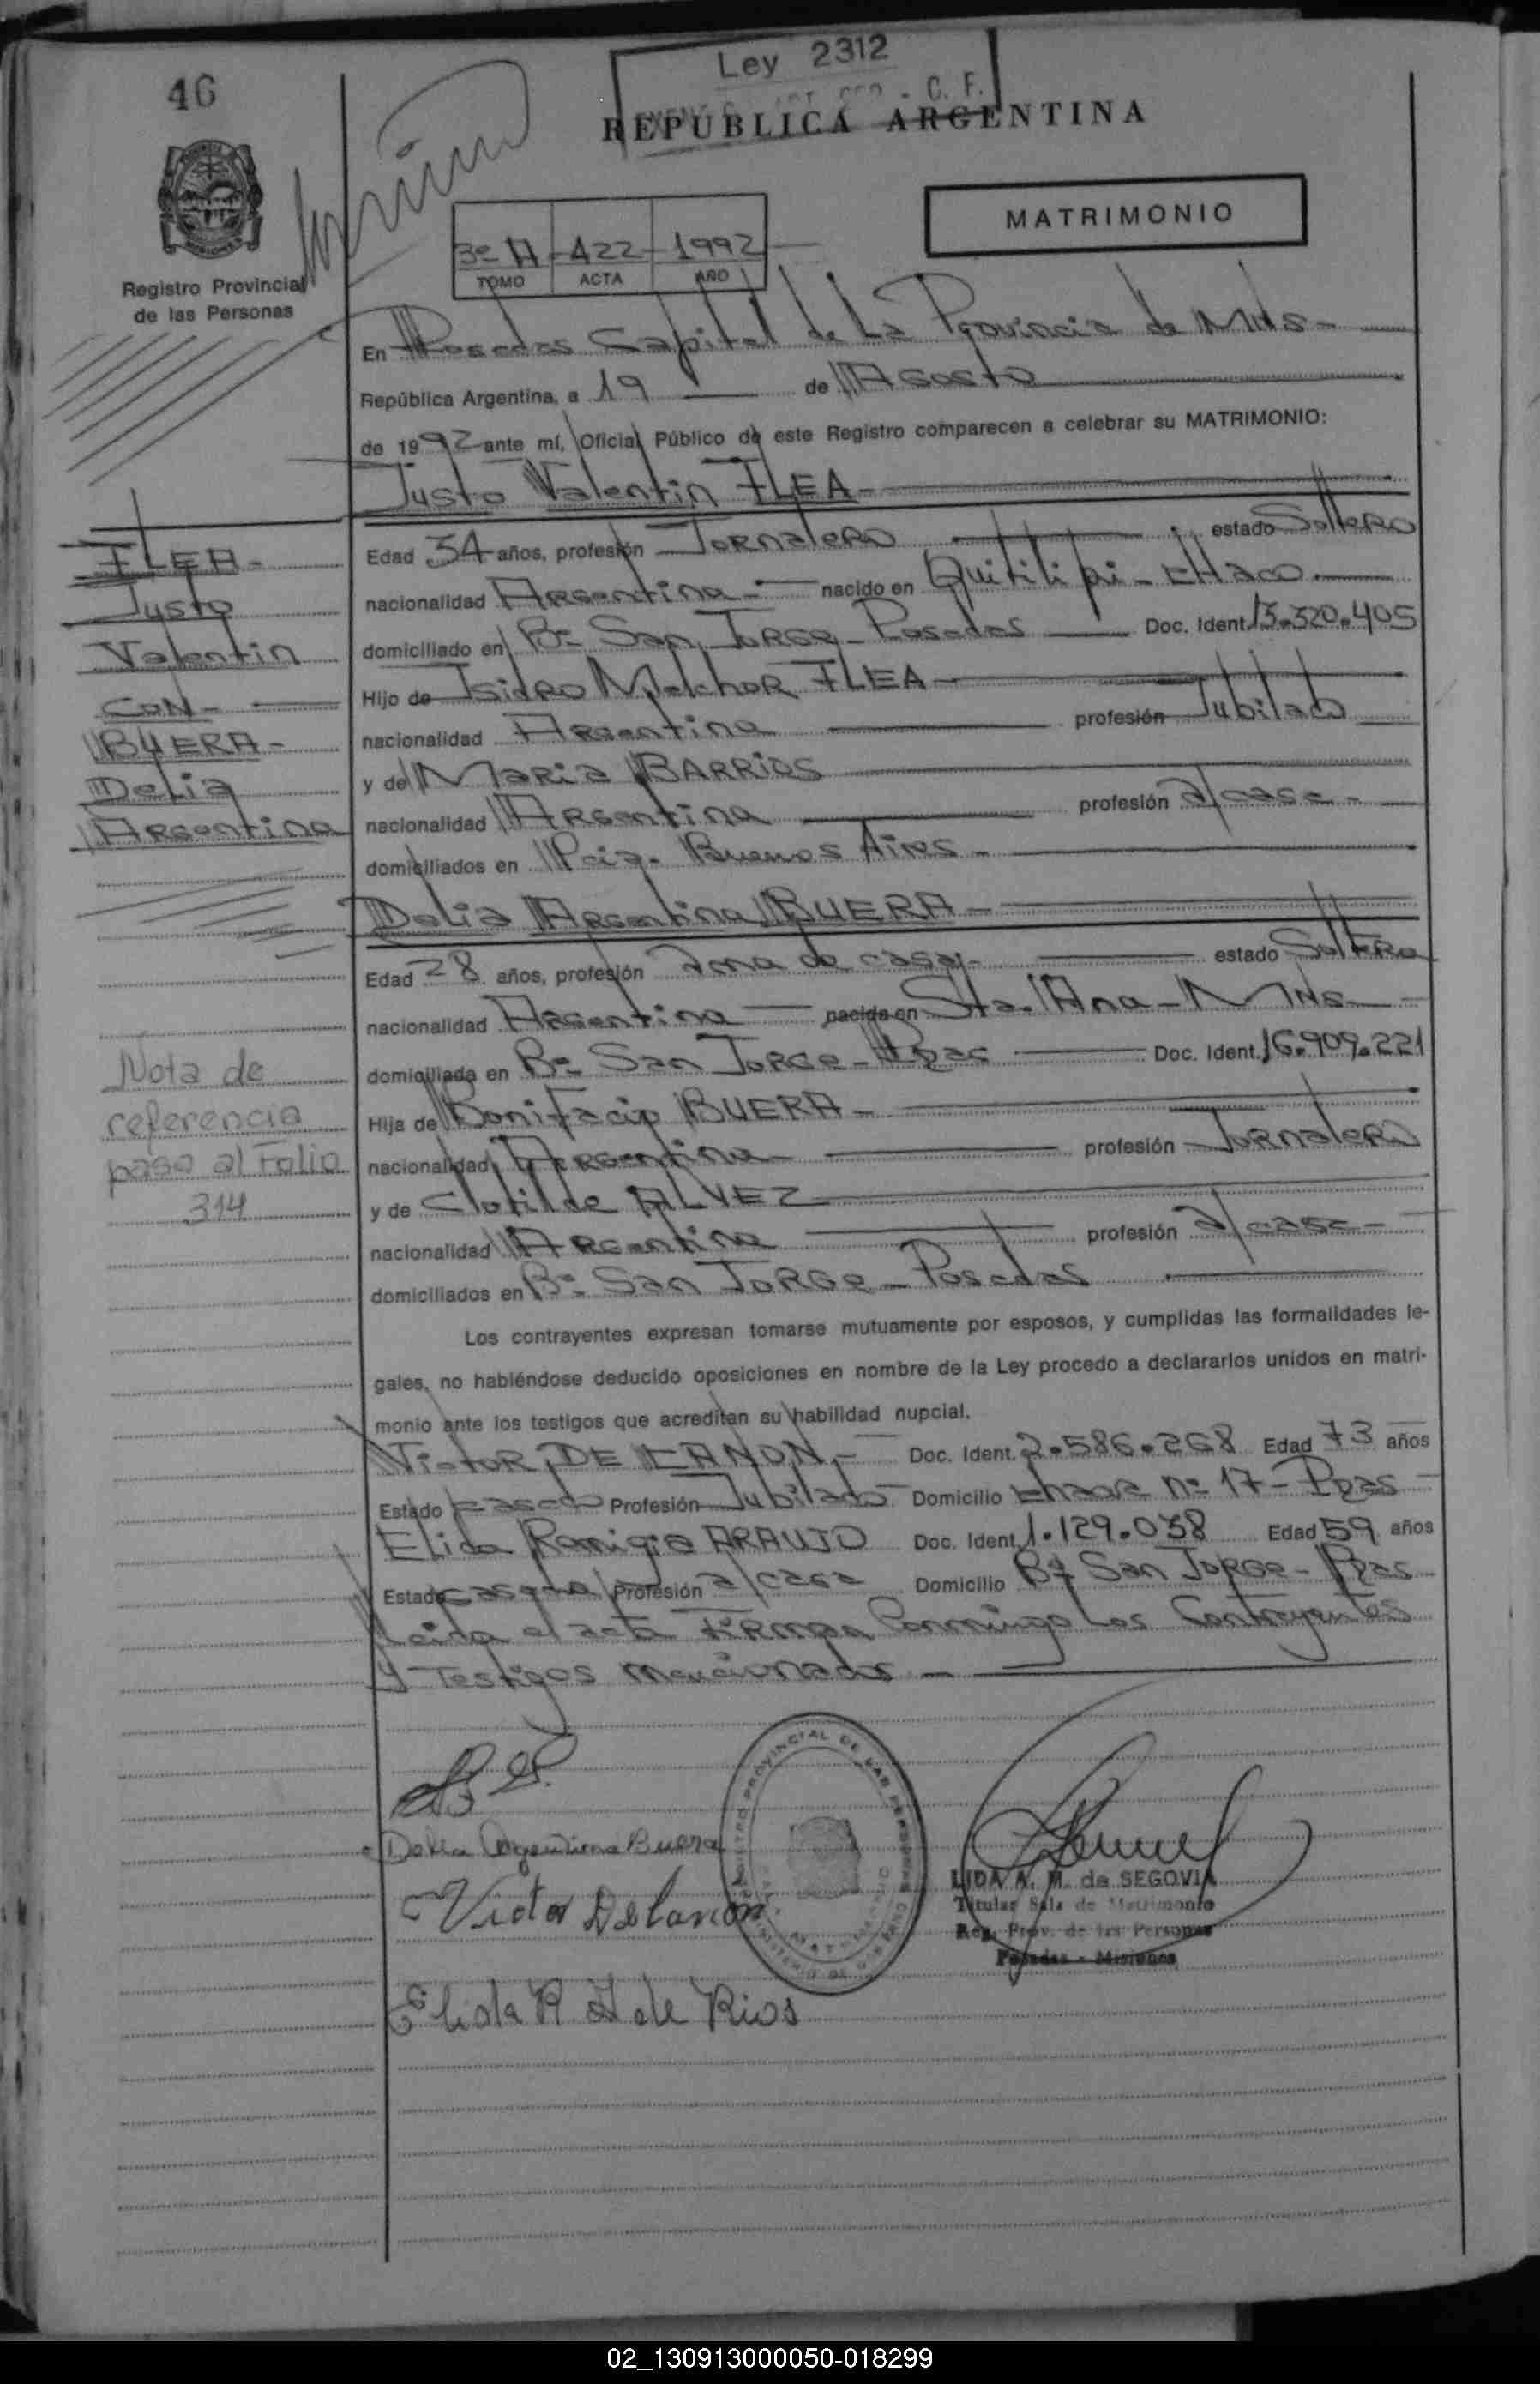 46
Ley 2312
C. F.
REPUBLICA ARGENTINA
MATRIMONIO
3º A - 422 - 1992
TOMO ACTA AÑO
Registro Provincial
de las Personas
En Posadas Capital de La Provincia de Mnes-
República Argentina, a 19 de Agosto
de 1992 ante mí, Oficial Público de este Registro comparecen a celebrar su MATRIMONIO:
Justo Valentin ILEA-
Edad 34 años, profesión Jornalero estado Soltero
nacionalidad Argentina - nacido en Quitilipi - CHaco.
domiciliado en Bº San Jorge - Posadas Doc. Ident. 13.320.405
Hijo de Isidro Melchor ILEA-
nacionalidad Argentina profesión Jubilado
y de Maria BARRIOS
nacionalidad Argentina profesión a/casa-
domiciliados en Pcia. Buenos Aires-
Delia Argentina BUERA-
Edad 28 años, profesión ama de casa- estado Soltera
nacionalidad Argentina nacida en Sta. Ana - Mnes-
domiciliada en Bº San Jorge - Pdas Doc. Ident. 16.909.221
Hija de Bonifacio BUERA-
nacionalidad Argentina profesión Jornalero
y de Clotilde ALVEZ
nacionalidad Argentina profesión a/casa-
domiciliados en Bº San Jorge - Posadas
Los contrayentes expresan tomarse mutuamente por esposos, y cumplidas las formalidades le-
gales, no habiéndose deducido oposiciones en nombre de la Ley procedo a declararlos unidos en matri-
monio ante los testigos que acreditan su habilidad nupcial.
Victor DE LANON,- Doc. Ident. 2.586.268 Edad 73 años
Estado casado Profesión Jubilado Domicilio Chacra nº 17 - Pdas
Elida Remigia ARAUJO Doc. Ident. 1.129.038 Edad 59 años
Estado casada Profesión a/casa Domicilio Bº San Jorge - Pdas-
Leida el acta Firman Conmigo Los Contrayentes
y Testigos mencionados -
ILEA-
Justo
Valentin
CON-
BUERA-
Delia
Argentina
Nota de
referencia
paso al Folio
314
Delia Argentina Buera
Victor Delanon
Elida R. A de Rios
REGISTRO PROVINCIAL DE LAS PERSONAS
LIDA A. M. de SEGOVIA
Titular Sala de Matrimonio
Reg. Prov. de las Personas
Posadas - Misiones
02_130913000050-018299